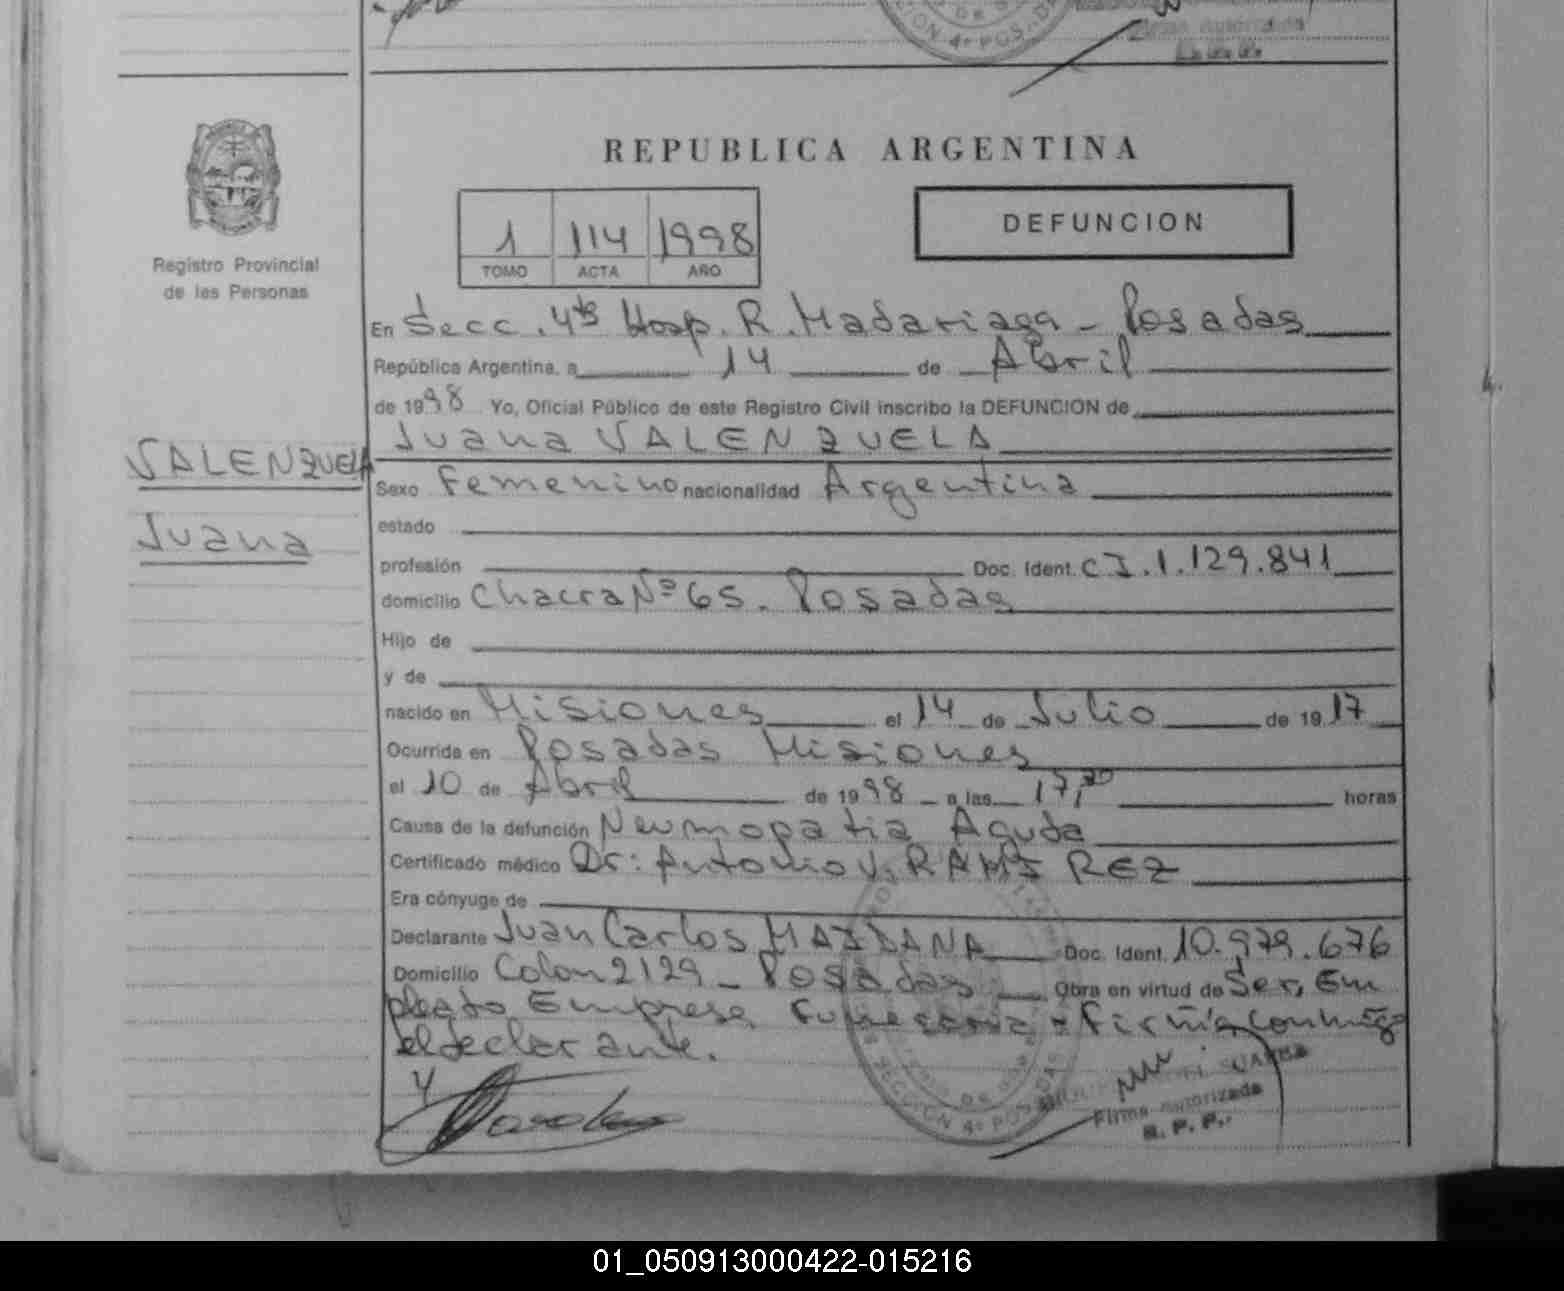 SECCION 4º POS.
Firma Autorizada
REPUBLICA ARGENTINA
1 114 1998
TOMO ACTA AÑO
DEFUNCION
Registro Provincial
de las Personas
En Secc. 4ta Hosp. R. Madariaga - Posadas
República Argentina, a 14 de Abril
de 1998 Yo, Oficial Público de este Registro Civil inscribo la DEFUNCION de
Juana VALENZUELA
VALENZUELA
Juana
Sexo Femenino nacionalidad Argentina
estado
profesión Doc. Ident. CI. 1.129.841
domicilio Chacra Nº 65. Posadas
Hijo de
y de
nacido en Misiones el 14 de Julio de 1917
Ocurrida en Posadas Misiones
el 10 de Abril de 1998 - a las 17,20 horas
Causa de la defunción Neumopatia Aguda
Certificado médico Dr: Antonio V. RAMIREZ
Era cónyuge de
Declarante Juan Carlos MAIDANA Doc. Ident. 10.979.676
Domicilio Colon 2129 - Posadas Obra en virtud de Ser, Em
pleado Empresa Funeraria - Firma conmigo
el declarante.
SECCION 4º POSADAS
Firma Autorizada
R. P. P.
01_050913000422-015216